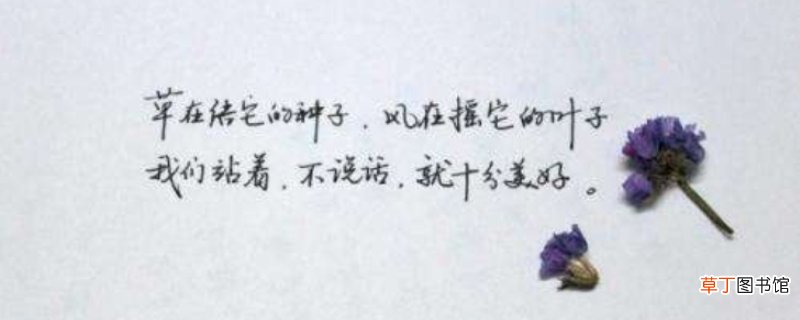 草在结它的种子，风在摇它的叶子
我们站着，不说话，就十分美好。
草丁图书馆